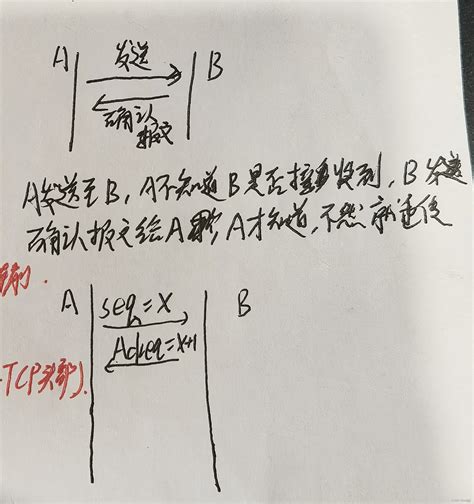 A 发送 B
确认
报文
A发送至B, A不知道B是否接收到, B发送
确认报文给A, A才知道, 不然就重传
A seq=x B
Ackseq=x+1
TCP头部).